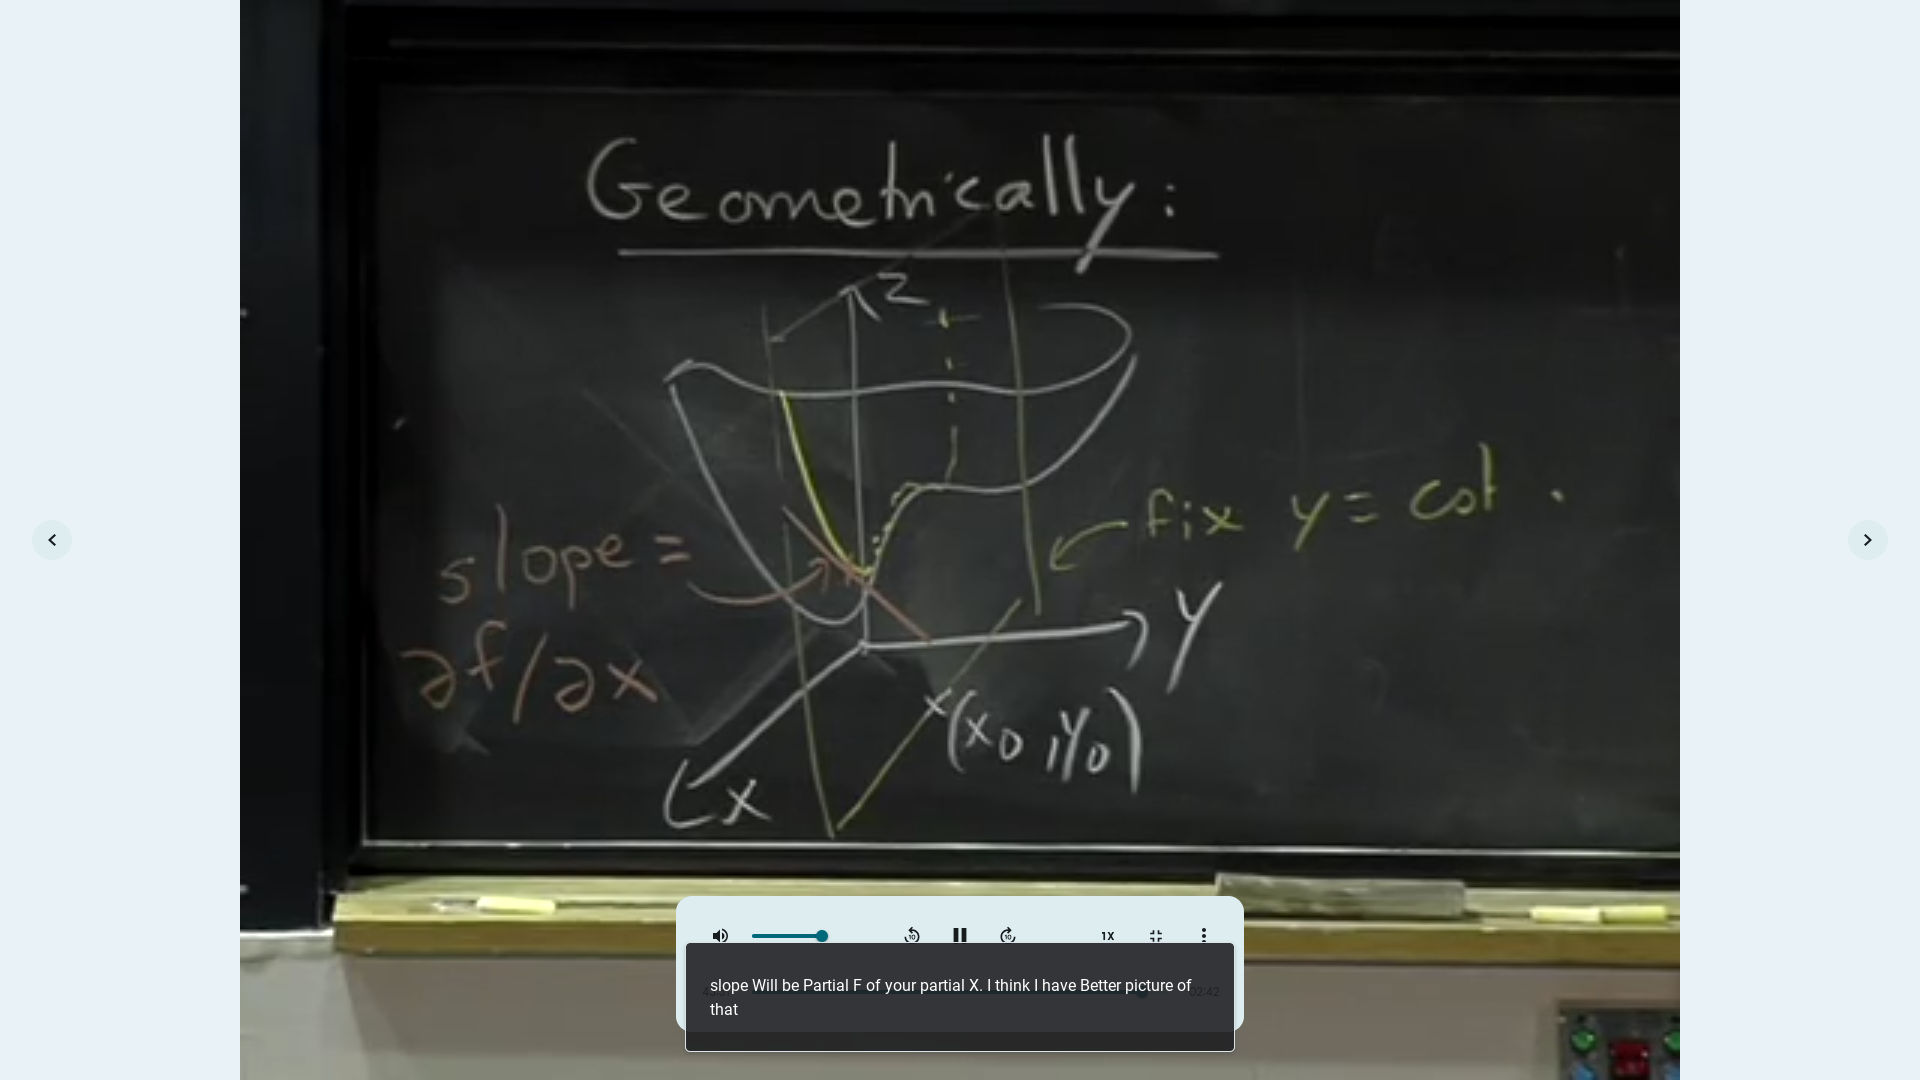 Geometrically:
z
fix y = cst.
slope =
∂f/∂x
y
x (x0, y0)
x
1X
slope Will be Partial F of your partial X. I think I have Better picture of
that
02:42